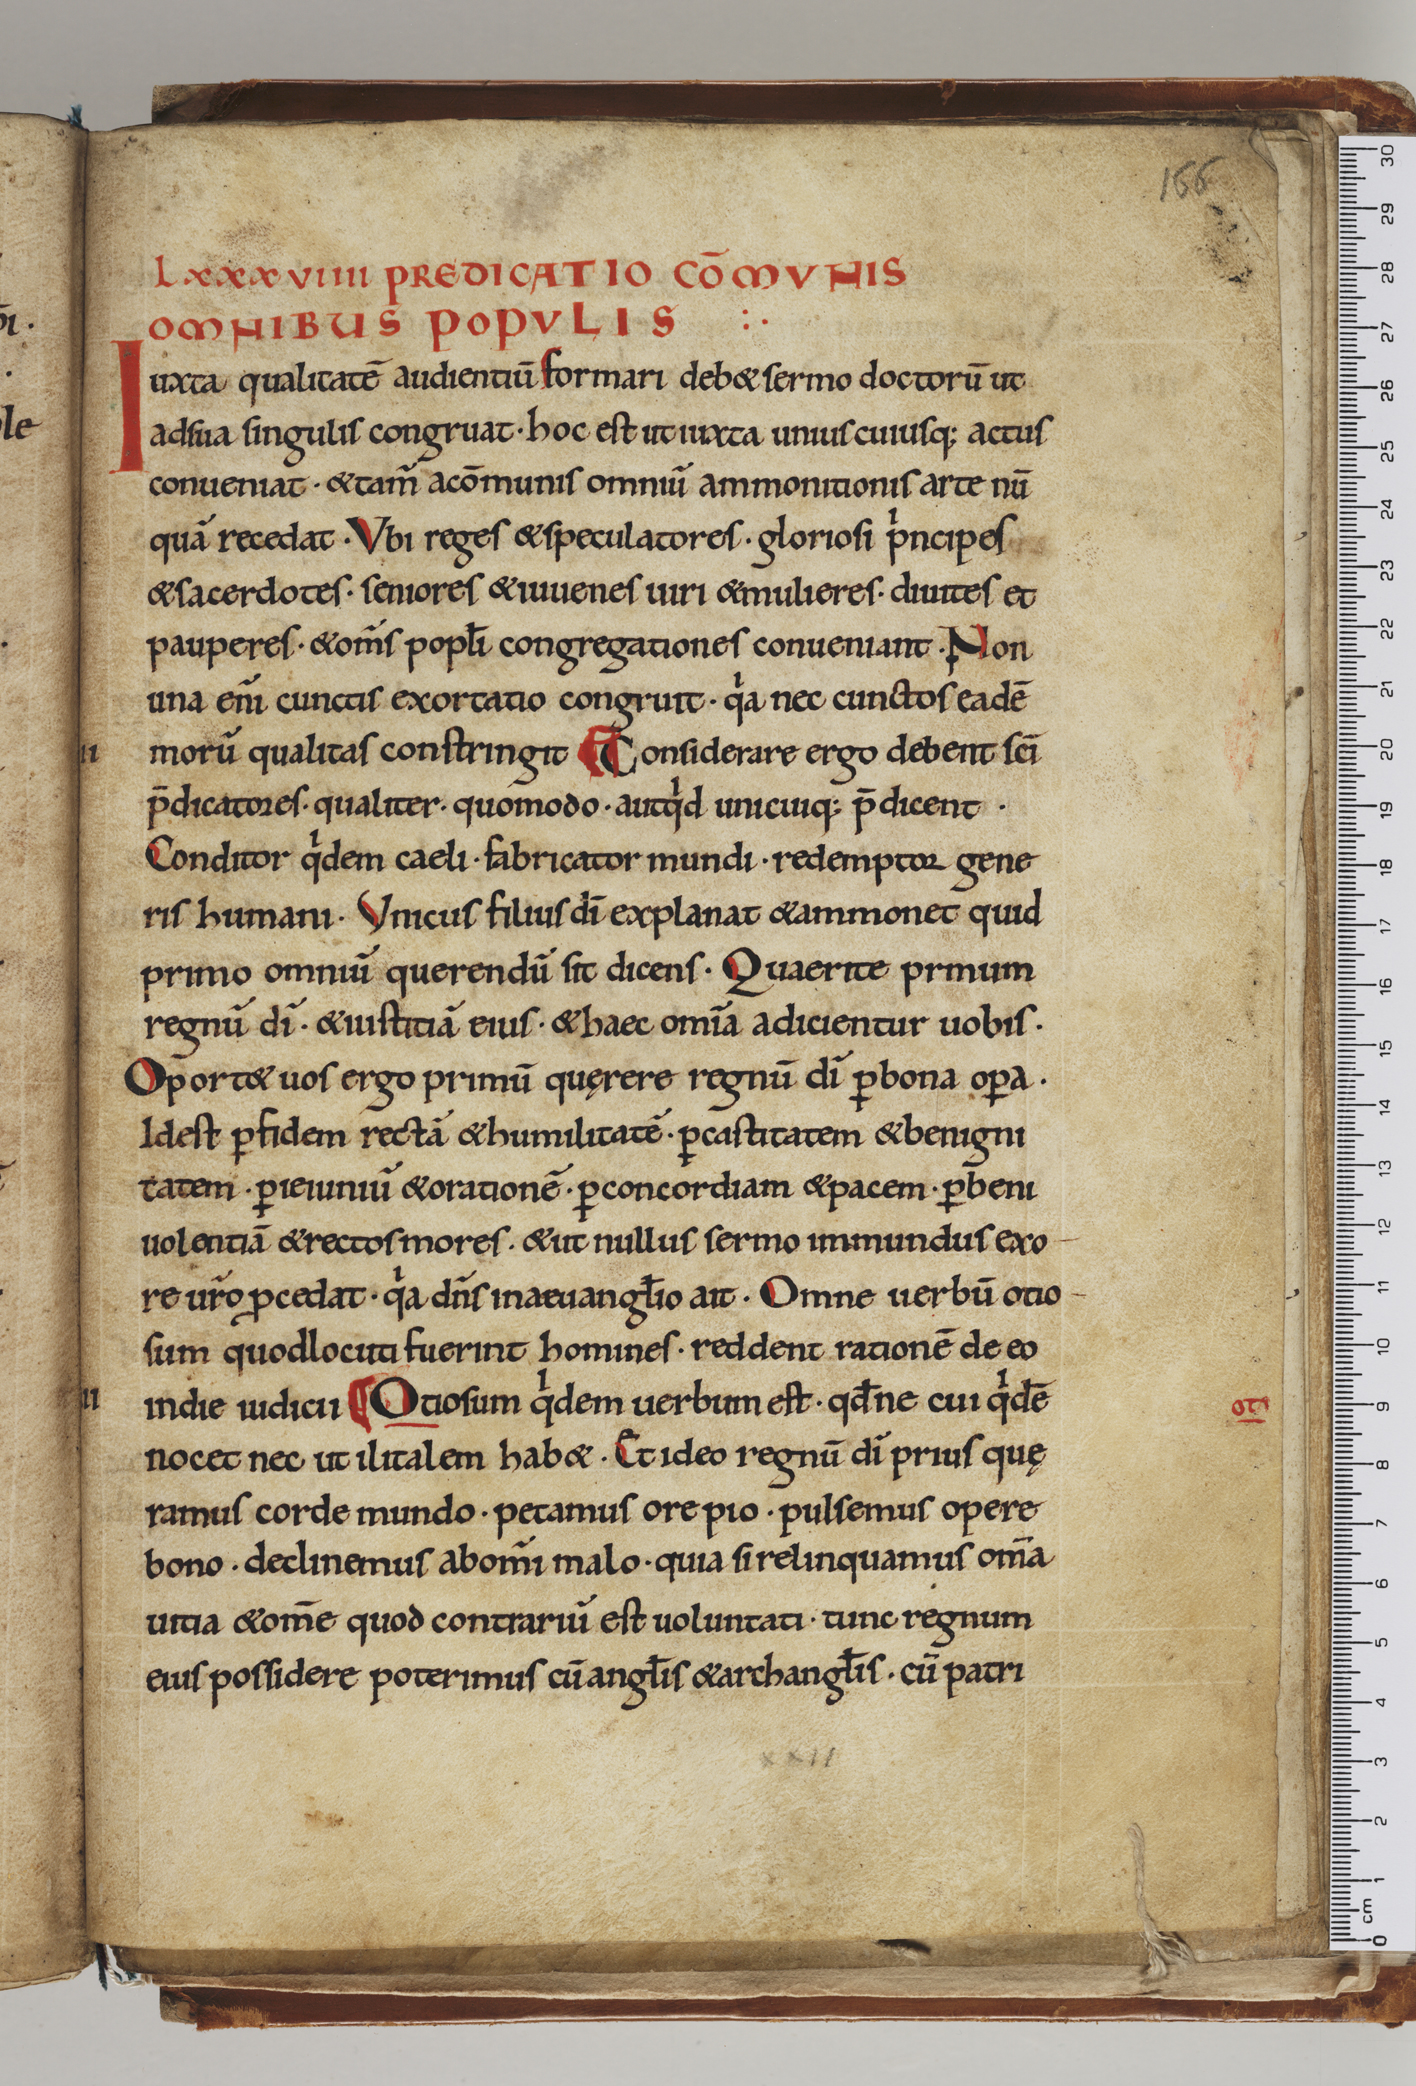 166
Lxxxviiii PREDICATIO COM̄VNIS
OMNIBUS POPVLIS :.
Iuxta qualitatē audientiū formari deb& sermo doctorū ut
adsua singulis congruat · hoc est ut iuxta unius cuiusq; actus
conueniat · &tam̄ acōmunis omniū ammonitionis arte nū
quā recedat · Vbi reges &speculatores · gloriosi pͥncipes
&sacerdotes · seniores &iuuenes uiri &mulieres · diuites et
pauperes · &om̄s popl̄i congregationes conueniant · Non
una eni̅ cunctis exortatio congruit · qͥa nec cunctos eadē
morū qualitas constringit Considerare ergo debent sc̄i
p̄dicatores · qualiter · quomodo · autqͥd unicuiq; p̄dicent ·
Conditor qͥdem caeli · fabricator mundi · redemptor gene
ris humani · Vnicus filius dī explanat &ammonet quid
primo omniū querendū sit dicens · Quaerite prmum
regnū dī · &iustitiā eius · &haec om̄ia adicientur uobis ·
Oport& uos ergo primū quęrere regnū dī ꝑbona oꝑa ·
Idest ꝑfidem rectā &humilitatē · ꝑcastitatem &benigni
tatem · ꝑieiuniū &orationē · ꝑconcordiam &pacem · ꝑbeni
uolentiā &rectos mores · &ut nullus sermo immundus exo
re ur̄o ꝓcedat · qͥa dn̄s inaeuangl̄io ait · Omne uerbū otio
sum quodlocuti fuerint homines · reddent rationē de eo
indie iudicii Otiosum qͥdem uerbum est · qd̄ ne cui qͥdē
nocet nec ut ilitalem hab& · Et ideo regnū dī prius quę
ramus corde mundo · petamus ore pio · pulsemus opere
bono · declinemus abom̄i malo · quia si relinquamus om̄a
uitia &om̄e quod contrariū est uoluntati · tunc regnum
eius possidere poterimus cū angl̄is &archangl̄is · cū patri
xxii